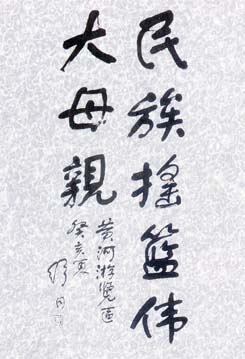 民族摇篮伟
大母親
黄河游览區
癸亥夏
舒同